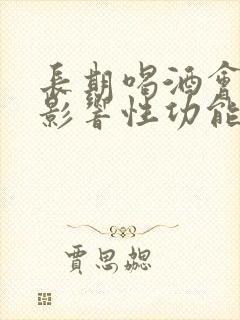 長期喝酒會
影響性功能
賈思勰